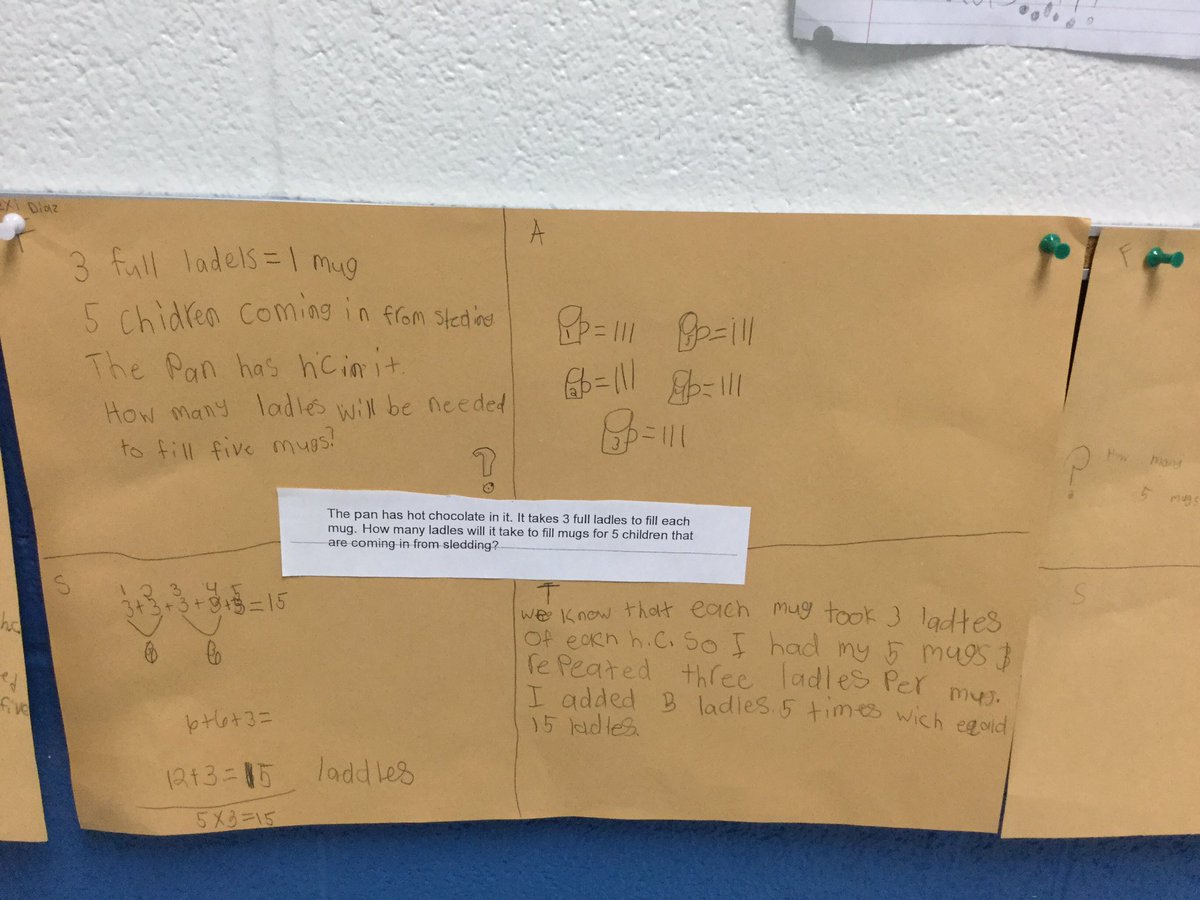 Diaz
F
3 full ladels = 1 mug
5 Chidren coming in from
The Pan has h'C in it.
How many ladles will be needed
to fill five mugs?
?
A
1 = III
5 = III
2 = III
4 = III
3 = III
The pan has hot chocolate in it. It takes 3 full ladles to fill each
mug. How many ladles will it take to fill mugs for 5 children that
are coming in from sledding?
S
1 2 3 4 5
3+3+3+3+3=15
6 6
6+6+3=
12+3=15 laddles
5x3=15
T
we know that each mug took 3 ladles
of each h.C. So I had my 5 mugs &
rePeated three ladles Per mug.
I added 3 ladles 5 times wich
15 ladles.
F
? How many
5 mugs
S
five